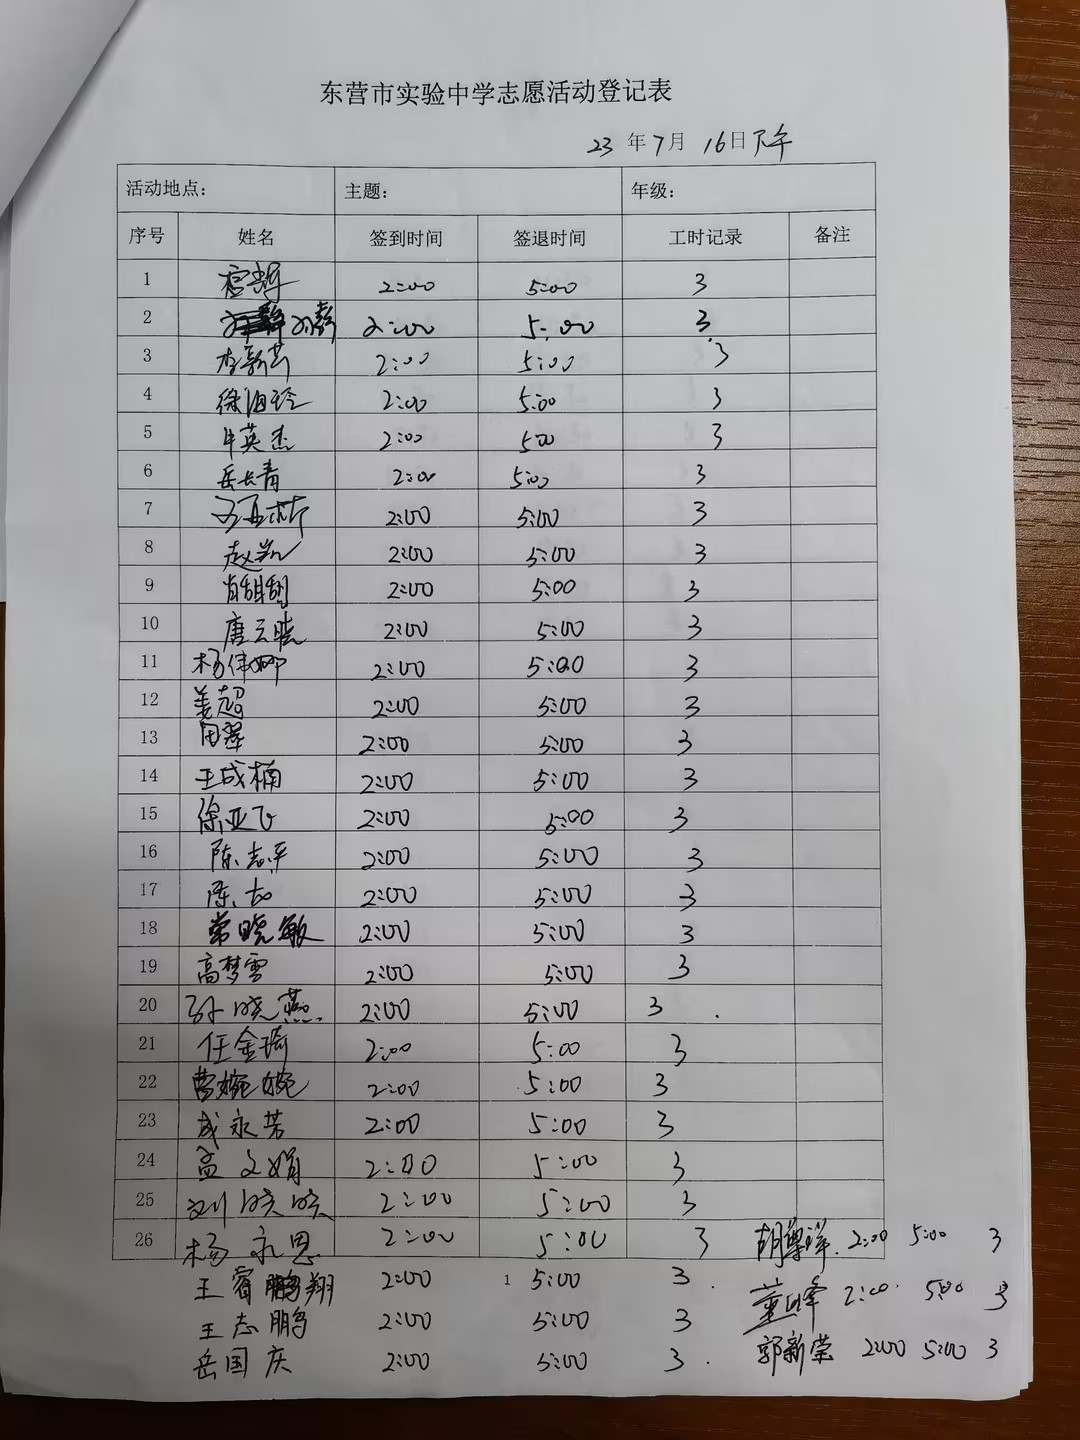 东营市实验中学志愿活动登记表
23 年 7 月 16 日下午
活动地点: 主题: 年级:
序号 姓名 签到时间 签退时间 工时记录 备注
1 2:00 5:00 3
2 2:00 5:00 3
3 李新芸 2:00 5:00 3
4 徐海玲 2:00 5:00 3
5 牛英杰 2:00 5:00 3
6 岳长青 2:00 5:00 3
7 2:00 5:00 3
8 赵凯 2:00 5:00 3
9 肖甜甜 2:00 5:00 3
10 唐云晓 2:00 5:00 3
11 杨伟娜 2:00 5:00 3
12 姜超 2:00 5:00 3
13 田翠 2:00 5:00 3
14 王成楠 2:00 5:00 3
15 徐亚飞 2:00 5:00 3
16 陈志平 2:00 5:00 3
17 2:00 5:00 3
18 常晓敏 2:00 5:00 3
19 高梦雪 2:00 5:00 3
20 孙晓燕 2:00 5:00 3
21 任金琦 2:00 5:00 3
22 曹婉婉 2:00 5:00 3
23 成永芳 2:00 5:00 3
24 孟文娟 2:00 5:00 3
25 刘晓晓 2:00 5:00 3
26 杨永恩 2:00 5:00 3 胡尊祥 2:00 5:00 3
王睿鹏翔 2:00 1 5:00 3 董峰 2:00 5:00 3
王志鹏 2:00 5:00 3
岳国庆 2:00 5:00 3 郭新荣 2:00 5:00 3